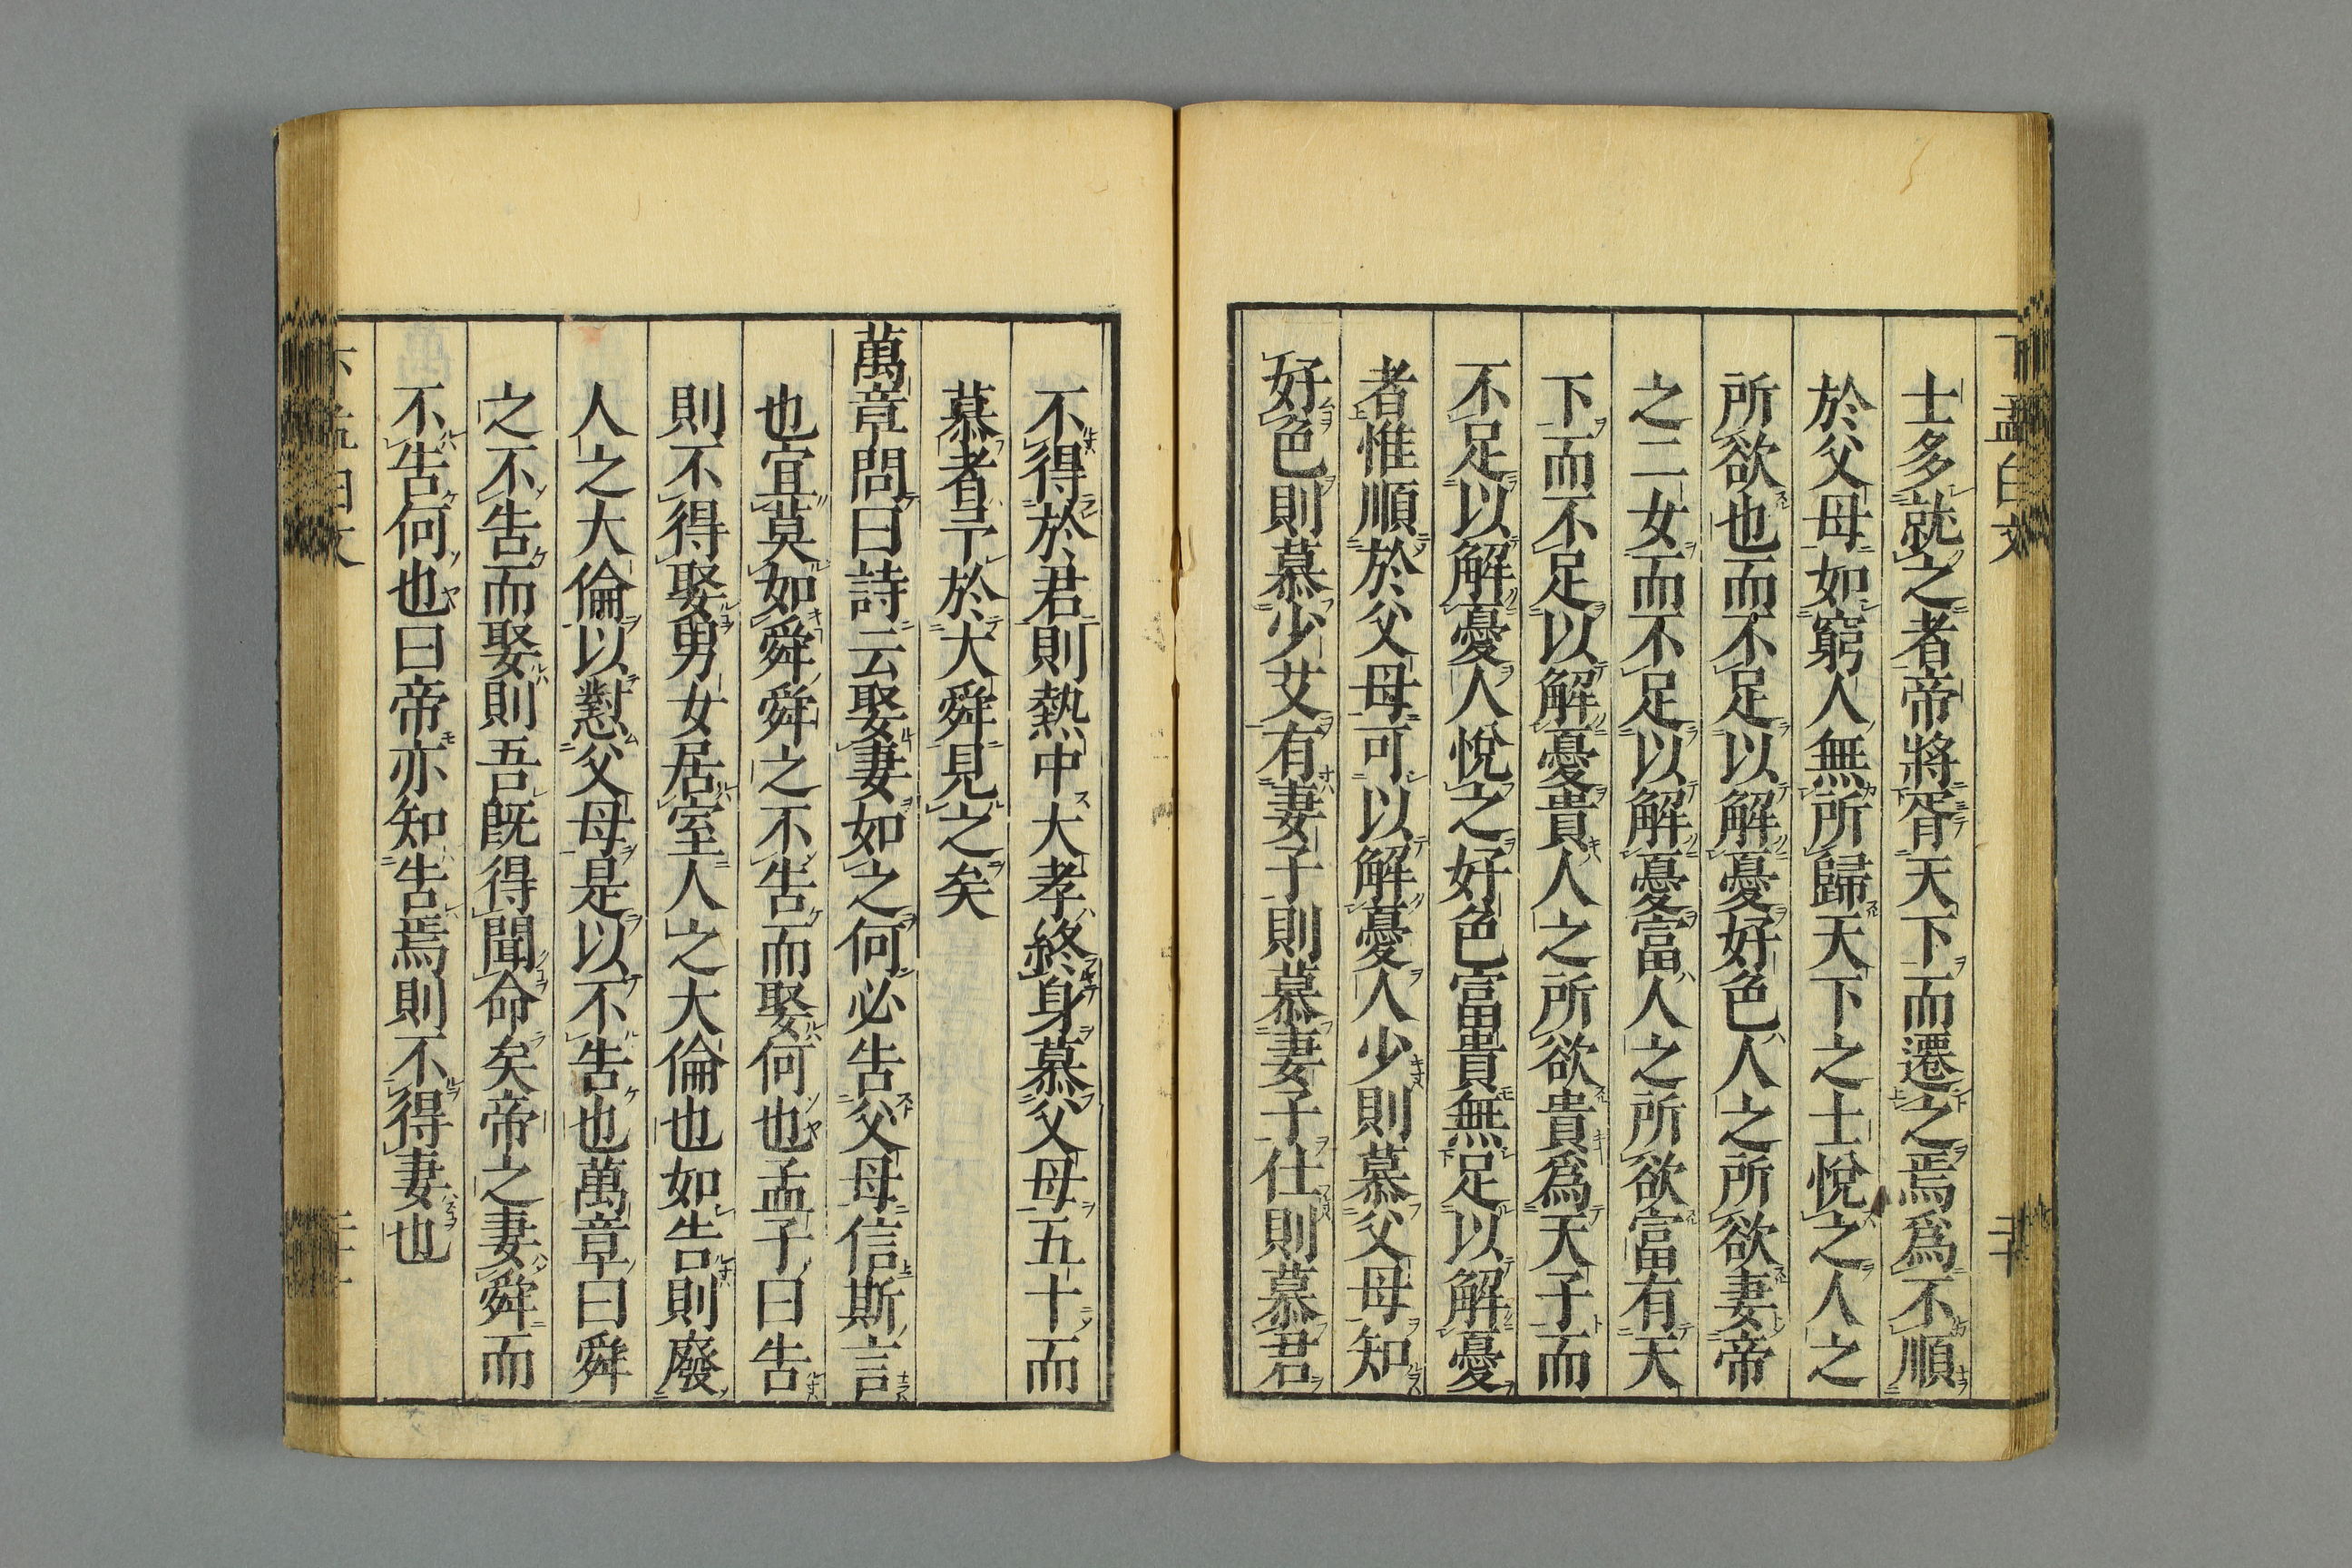 士多就之者帝將胥天下而遷之焉爲不順
於父母如窮人無所歸天下之士悅之人之
所欲也而不足以解憂好色人之所欲妻帝
之二女而不足以解憂富人之所欲富有天
下而不足以解憂貴人之所欲貴爲天子而
不足以解憂人悅之好色富貴無足以解憂
者惟順於父母可以解憂人少則慕父母知
好色則慕少艾有妻子則慕妻子仕則慕君
不得於君則熱中大孝終身慕父母五十而
慕者予於大舜見之矣
萬章問曰詩云娶妻如之何必告父母信斯言
也宜莫如舜舜之不告而娶何也孟子曰告
則不得娶男女居室人之大倫也如告則廢
人之大倫以懟父母是以不告也萬章曰舜
之不告而娶則吾旣得聞命矣帝之妻舜而
不告何也曰帝亦知告焉則不得妻也